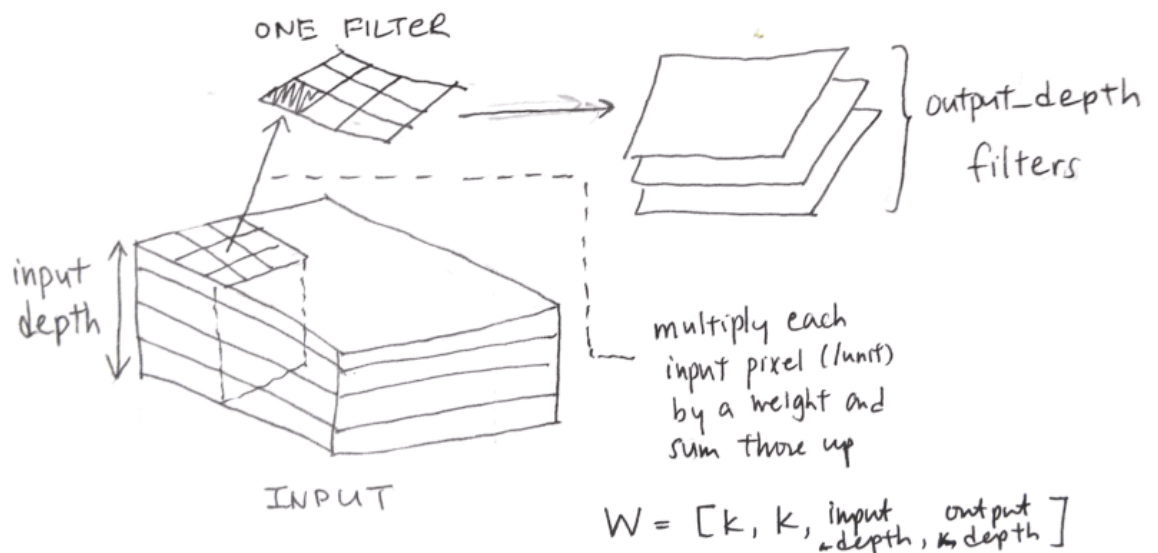 ONE FILTER
output_depth
filters
input
depth
multiply each
input pixel (/unit)
by a weight and
sum those up
INPUT
W = [k, k, input depth, output depth]